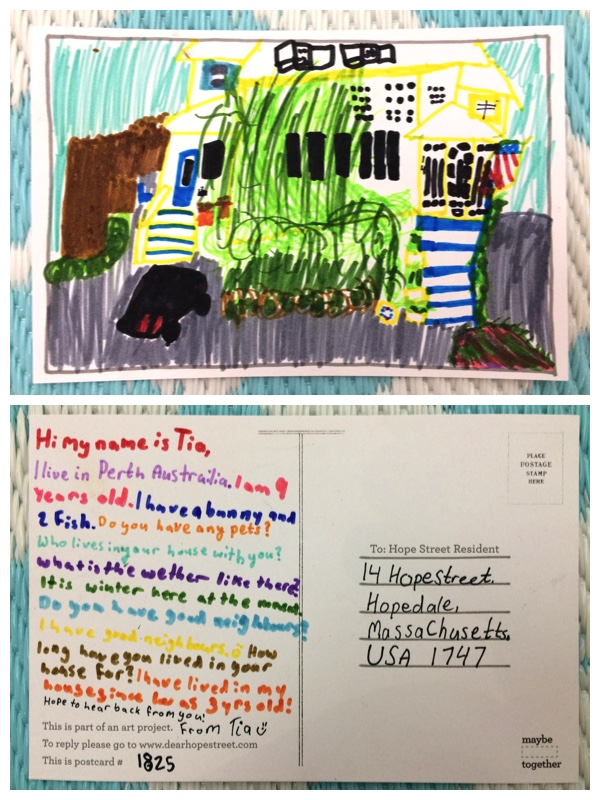 Hi my name is Tia,
I live in Perth Austrailia. I am 9
years old. I have a bunny and
2 Fish. Do you have any pets?
Who lives in your house with you?
what is the wether like there?
It is winter here at the moment.
Do you have good neighbours?
I have good neighbours. How
long have you lived in your
house for? I have lived in my
house since I was 3 yrs old!
Hope to hear back from you!
From Tia
This is part of an art project.
To reply please go to www.dearhopestreet.com
This is postcard # 1825
PLACE
POSTAGE
STAMP
HERE
To: Hope Street Resident
14 Hopestreet.
Hopedale,
Massachusetts,
USA 1747
maybe
together